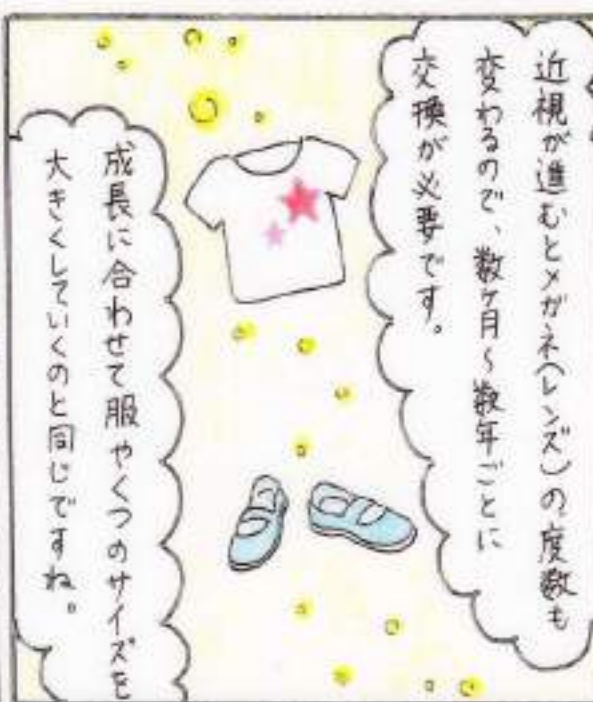 近視が進むとメガネ(レンズ)の度数も
変わるので、数ヶ月~数年ごとに
交換が必要です。
成長に合わせて服やくつのサイズを
大きくしていくのと同じですね。